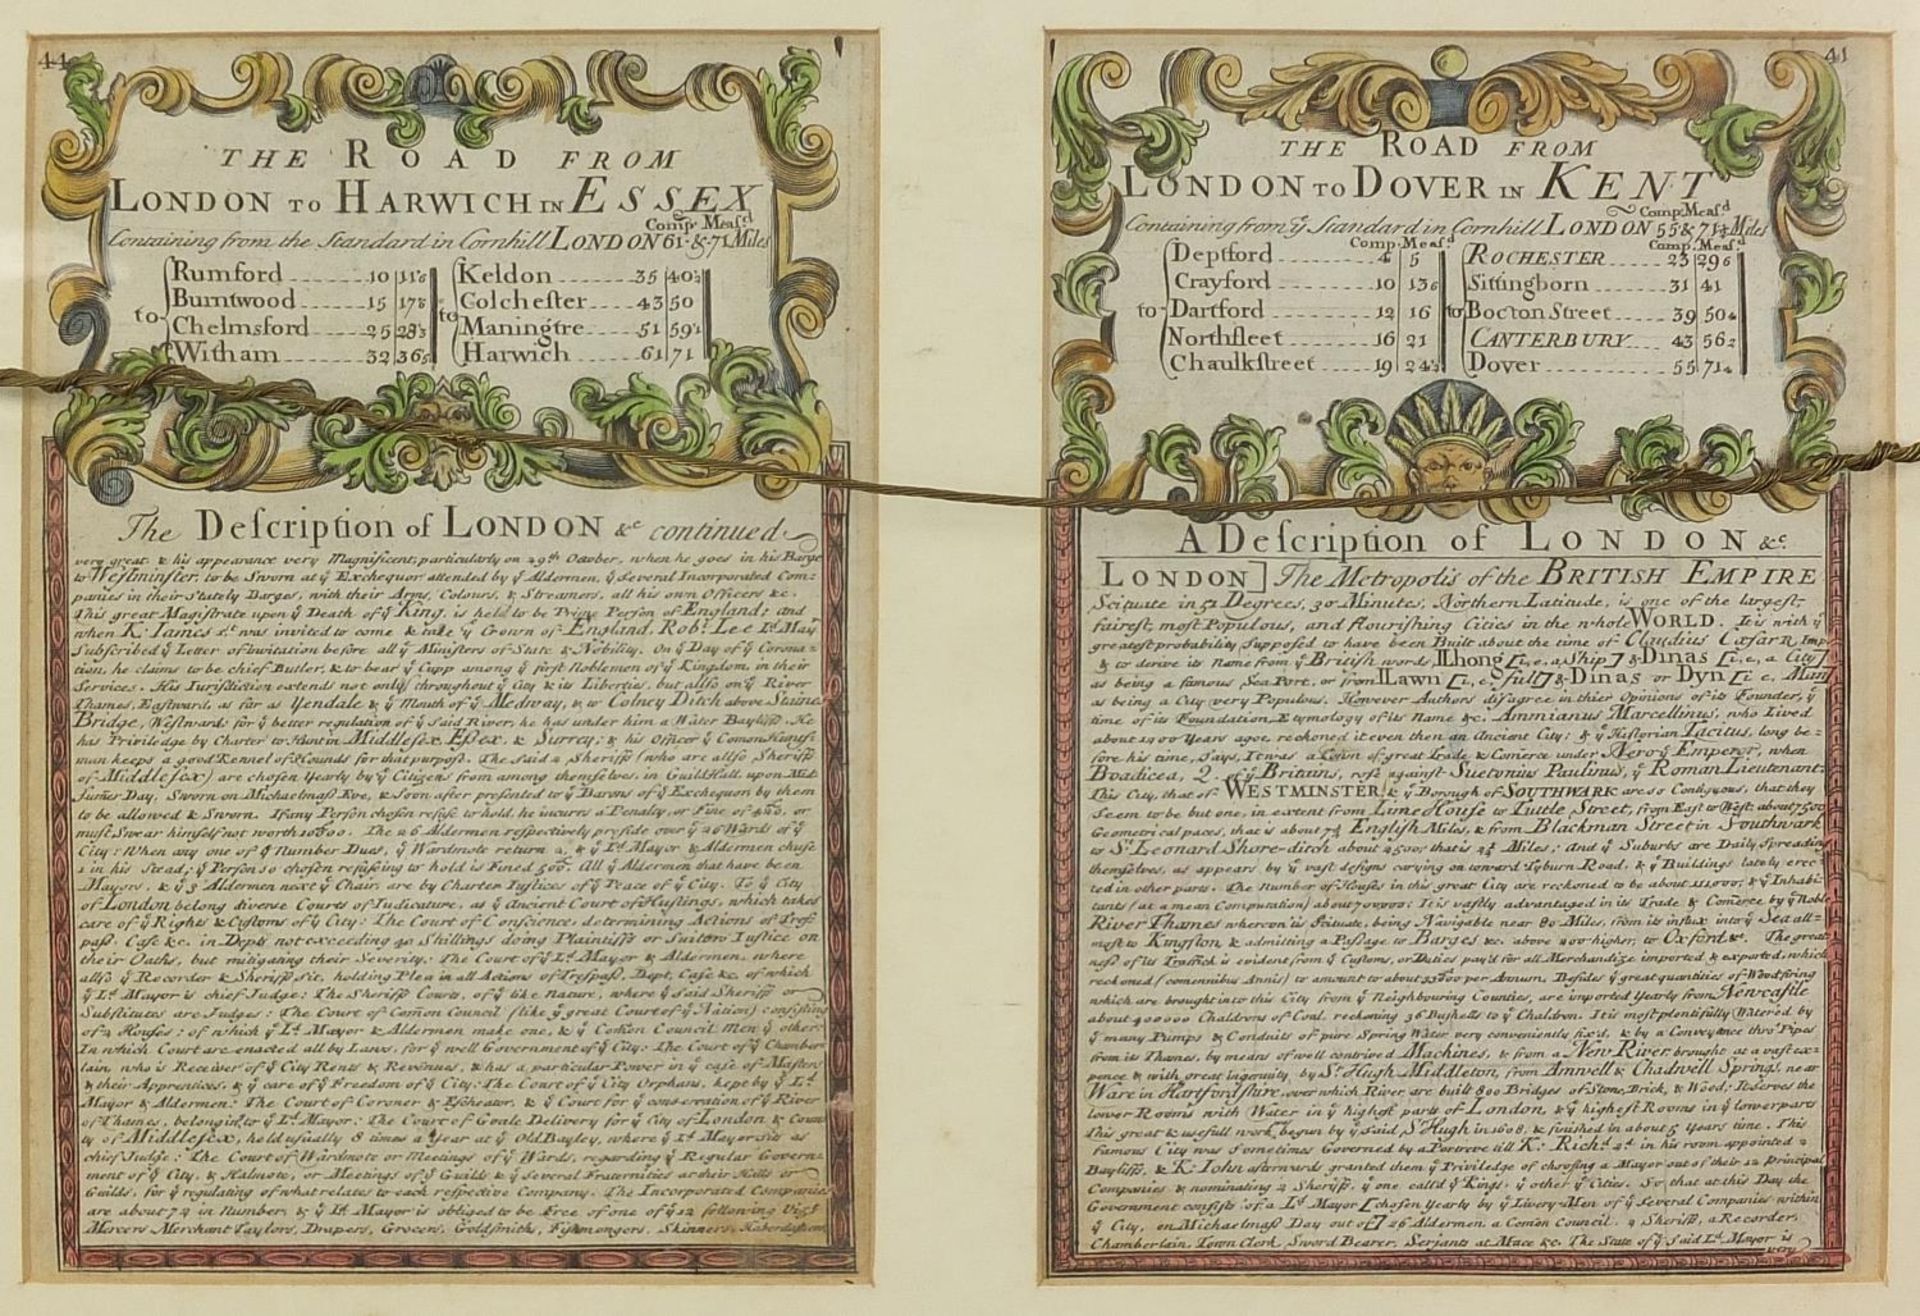 44
THE ROAD FROM
LONDON TO HARWICH IN ESSEX
Comp. Meaſd
Containing from the Standard in Cornhill LONDON 61 & 71 Miles
to Rumford 10 11
Burntwood 15 17
Chelmsford 25 28
Witham 32 36
to Keldon 35 40
Colcheſter 43 50
Maningtre 51 59
Harwich 61 71
The Deſcription of LONDON &c continued
very great & his appearance very Magnificent, particularly on 29th October, when he goes in his Barge
to Weſtminſter, to be Sworn at ye Exchequor attended by ye Aldermen, ye ſeveral Incorporated Com=
panies in their ſtately Barges, with their Arms, Colours, & Streamers, all his own Officers &c.
This great Magiſtrate upon ye Death of ye King, is held to be Prime Perſon of England; and
when K. Iames 1st was invited to come & take ye Crown of England, Robt. Lee Ld. May
Subſcribed ye Letter of Invitation before all ye Miniſters of State & Nobility. On ye Day of ye Corona=
tion, he claims to be chief Butler, & to bear ye Cupp among ye firſt Noblemen of ye Kingdom, in their
Services. His Iuriſdiction extends not only throughout ye City & its Liberties, but allſo on ye River
Thames, Eaſtward, as far as Yendale & ye Mouth of ye Medway, & to Colney Ditch above Staines
Bridge, Weſtward: for ye better regulation of ye Said River, he has under him a Water Bayliff. He
has Priviledge by Charter to Hunt in Middleſex, Eſſex, & Surrey; & his Officer ye Comon Huntſ
man keeps a good Kennel of Hounds for that purpoſe. The ſaid 2 Sheriffs (who are allſo Sheriffs
of Middleſex) are choſen Yearly by ye Citizens from among themſelves, in Guild Hall, upon Mid
ſumer Day, Sworn on Michaelmaſs Eve, & ſoon after preſented to ye Barons of ye Exchequor by them
to be allowed & Sworn. If any Perſon choſen refuſe to hold, he incurrs a Penalty, or Fine of or
muſt Swear himſelf not worth The 26 Aldermen reſpectively preſide over ye 26 Wards of ye
City: When any one of ye Number Dues, ye Wardmote return 2, & ye Ld. Mayor & Aldermen chuſe
1 in his ſtead; ye Perſon ſo choſen refuſeing to hold is Fined All ye Aldermen that have been
Mayors, & ye 3 Aldermen next ye Chair, are by Charter Iuſtices of ye Peace of ye City. To ye City
of London belong diverſe Courts of Iudicature, as ye Ancient Court of Huſtings, which takes
care of ye Rights & Cuſtoms of ye City: The Court of Conſcience, determining Actions of Treſ
paſs, Caſe &c. in Depts not exceeding 40 Shillings doing Plaintiffs or Suitors Iuſtice on
their Oaths, but mitigating their Severity: The Court of ye Ld. Mayor & Aldermen, where
allſo ye Recorder & Sheriffs ſit, holding Plea in all Actions of Treſpaſs, Dept, Caſe &c. of which
ye Ld. Mayor is chief Iudge: The Sheriffs Courts, of ye like Nature, where ye ſaid Sheriffs or
Subſtitutes are Iudges: The Court of Comon Council (like ye great Court of ye Nation) conſiſting
of 2 Houſes: of which ye Ld. Mayor & Aldermen make one, & ye Comon Council Men ye other:
In which Court are enacted all by Laws, for ye well Government of ye City: The Court of ye Chamber
lain, who is Receiver of ye City Rents & Revenues, & has a particular Power in ye caſe of Maſters
& their Apprentices, & ye care of ye Freedom of ye City: The Court of ye City Orphans, kept by ye Ld.
Mayor & Aldermen: The Court of Coroner & Eſcheator, & ye Court for ye conservation of ye River
of Thames, belonging to ye Ld. Mayor: The Court of Goale Delivery for ye City of London & Coun
ty of Middleſex, held uſually 8 times a Year at ye Old Bayley, where ye Ld. Mayor ſits as
chief Iudge: The Court of Wardmote or Meetings of ye Wards, regarding ye Regular Govern=
ment of ye City, & Halmote, or Meetings of ye Guilds & ye ſeveral Fraternities at their Halls or
Guilds, for ye regulating of what relates to each reſpective Company. The Incorporated Companies
are about 72 in Number, & ye Ld. Mayor is obliged to be Free of one of ye 12 following Vizt
Mercers Merchant Taylors, Drapers, Grocers, Goldſmiths, Fiſhmongers, Skinners, Haberdaſhers
41
THE ROAD FROM
LONDON TO DOVER IN KENT
Comp. Meaſd
Containing from ye Standard in Cornhill LONDON 55 & 71 Miles
Comp. Meaſd Comp. Meaſd
to Deptford 4 5
Crayford 10 13
Dartford 12 16
Northfleet 16 21
Chaulkſtreet 19 24
to ROCHESTER 23 29
Sittingborn 31 41
Bocton Street 39 50
CANTERBURY 43 56
Dover 55 71
A Deſcription of LONDON &c.
LONDON] The Metropolis of the BRITISH EMPIRE
Scituate in 51 Degrees, 30 Minutes, Northern Latitude, is one of the largeſt,
faireſt, moſt Populous, and flouriſhing Cities in the whole WORLD. It is with ye
greateſt probability ſuppoſed to have been Built about the time of Claudius Cæſar R. Imp
& to derive its Name from ye Britiſh words Lhong [i, e, a, Ship] & Dinas [i, e, a City]
as being a famous Sea Port, or from Lawn [i, e, full] & Dinas or Dyn [i e, Man
as being a City very Populous. However Authors diſagree in thier Opinions of its Founder, ye
time of its Foundation, Etymology of its Name &c. Ammianus Marcellinus, who Lived
about 1200 Years agoe, reckoned it even then an Ancient City: & ye Hiſtorian Tacitus, long be=
fore his time, ſays, It was a Town of great Trade & Comerce under Nero ye Emperor, when
Boadicea, Q. of ye Britains, roſe againſt Suetonius Paulinus, ye Roman Lieutenant:
This City, that of WESTMINSTER & ye Borough of SOUTHWARK are ſo Contiguous, that they
ſeem to be but one, in extent from Lime Houſe to Tuttle Street, from Eaſt to Weſt, about 7500
Geometrical paces, that is about 7½ Engliſh Miles, & from Blackman Street in Southwark
to St. Leonard Shore-ditch about 2500; that is 2½ Miles; And ye Suburbs are Daily ſpreading
themſelves, as appears by ye vaſt deſigns carrying on toward Tyburn Road, & ye Buildings lately erec=
ted in other parts. The Number of Houſes in this great City are reckoned to be about 111,000; & ye Inhabi=
tants (at a mean Computation) about 700000: It is vaſtly advantaged in its Trade & Comerce by ye Noble
River Thames whereon it is ſcituate, being Navigable near 80 Miles, from its influx into ye Sea all=
moſt to Kingſton & admitting a Paſſage to Barges &c. above 200 higher, to Oxford &c. The great
neſs of its Traffick is evident from ye Cuſtoms, or Duties pay'd for all Merchandize imported & exported, which
reckoned (comunibus Annis) to amount to about per Annum. Beſides ye great quantities of Wood firing
which are brought into this City from ye Neighbouring Counties, are imported Yearly from Newcaſtle
about 400000 Chaldrons of Coal, reckoning 36 Buſhells to ye Chaldron. It is moſt plentifully Watered by
ye many Pumps & Conduits of pure Spring Water very conveniently fix'd, & by a Conveyance thro' Pipes
from its Thames, by means of well contrived Machines, & from a New River, brought at a vaſt ex=
pence & with great Ingenuity by Sr. Hugh Middleton, from Amwell & Chadwell Springs, near
Ware in Hartfordſhire, over which River are built 800 Bridges of Stone, Brick, & Wood; It ſerves the
lower Rooms with Water in ye higheſt parts of London, & ye higheſt Rooms in ye lower parts
This great & uſefull work, begun by ye ſaid Sr. Hugh in 1608, & finiſhed in about 5 Years time. This
famous City was ſometimes Governed by a Portreve till K: Richd. 2d. in his room appointed 2
Bayliffs, & K: Iohn afterwards granted them ye Priviledge of chooſing a Mayor out of their 12 principal
Companies & nominating 2 Sheriffs, ye one call'd ye Kings, ye other ye Cities. So that at this Day the
Government conſiſts of a Ld. Mayor [choſen Yearly by ye Livery-Men of ye ſeveral Companies within
ye City, on Michaelmaſs Day out of] 26 Aldermen, a Comon Council, 2 Sheriffs, a Recorder,
Chamberlain, Town Clerk, Sword Bearer, Serjants at Mace &c. The State of ye ſaid Ld. Mayor is
very